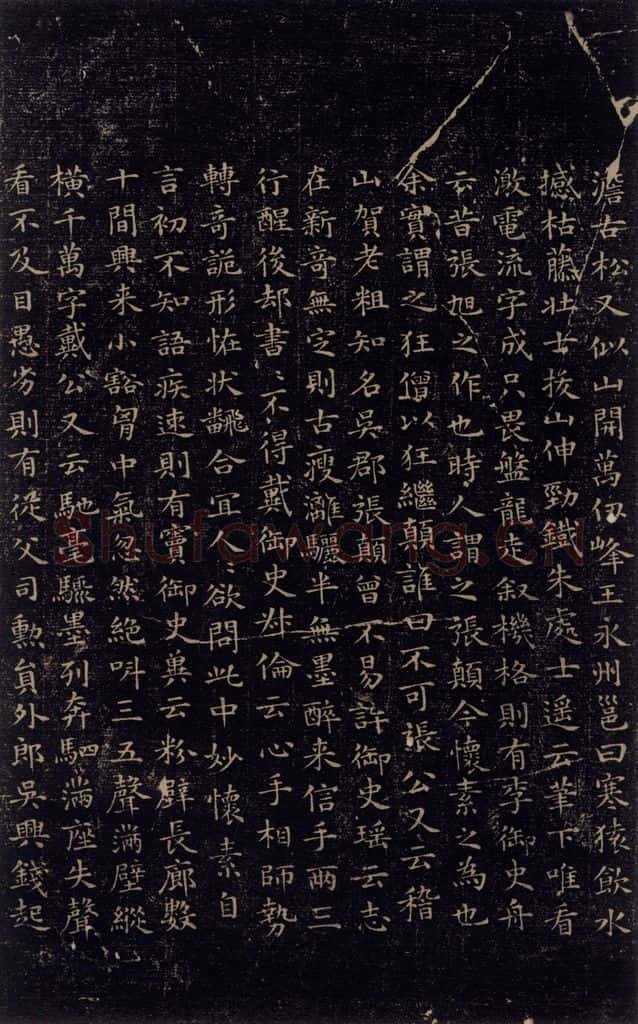 澹古松又似山開萬仞峰王永州邕曰寒猿飲水
撼枯藤壯士拔山伸勁鐵朱處士遥云筆下唯看
激電流字成只畏盤龍走叙機格則有李御史舟
云昔張旭之作也時人謂之張顛今懷素之為也
余實謂之狂僧以狂繼顛誰曰不可張公又云稽
山賀老粗知名吳郡張顛曾不易許御史瑶云志
在新奇無定則古瘦漓驪半無墨醉来信手兩三
行醒後却書〻不得戴御史叔倫云心手相師勢
轉奇詭形恠状翻合宜人〻欲問此中妙懷素自
言初不知語疾速則有竇御史冀云粉壁長廊數
十間興来小豁胷中氣忽然絶叫三五聲滿壁縱
橫千萬字戴公又云馳毫驟墨列奔駟滿座失聲
看不及目愚劣則有從父司勳員外郎吳興錢起
Shufawang.cn